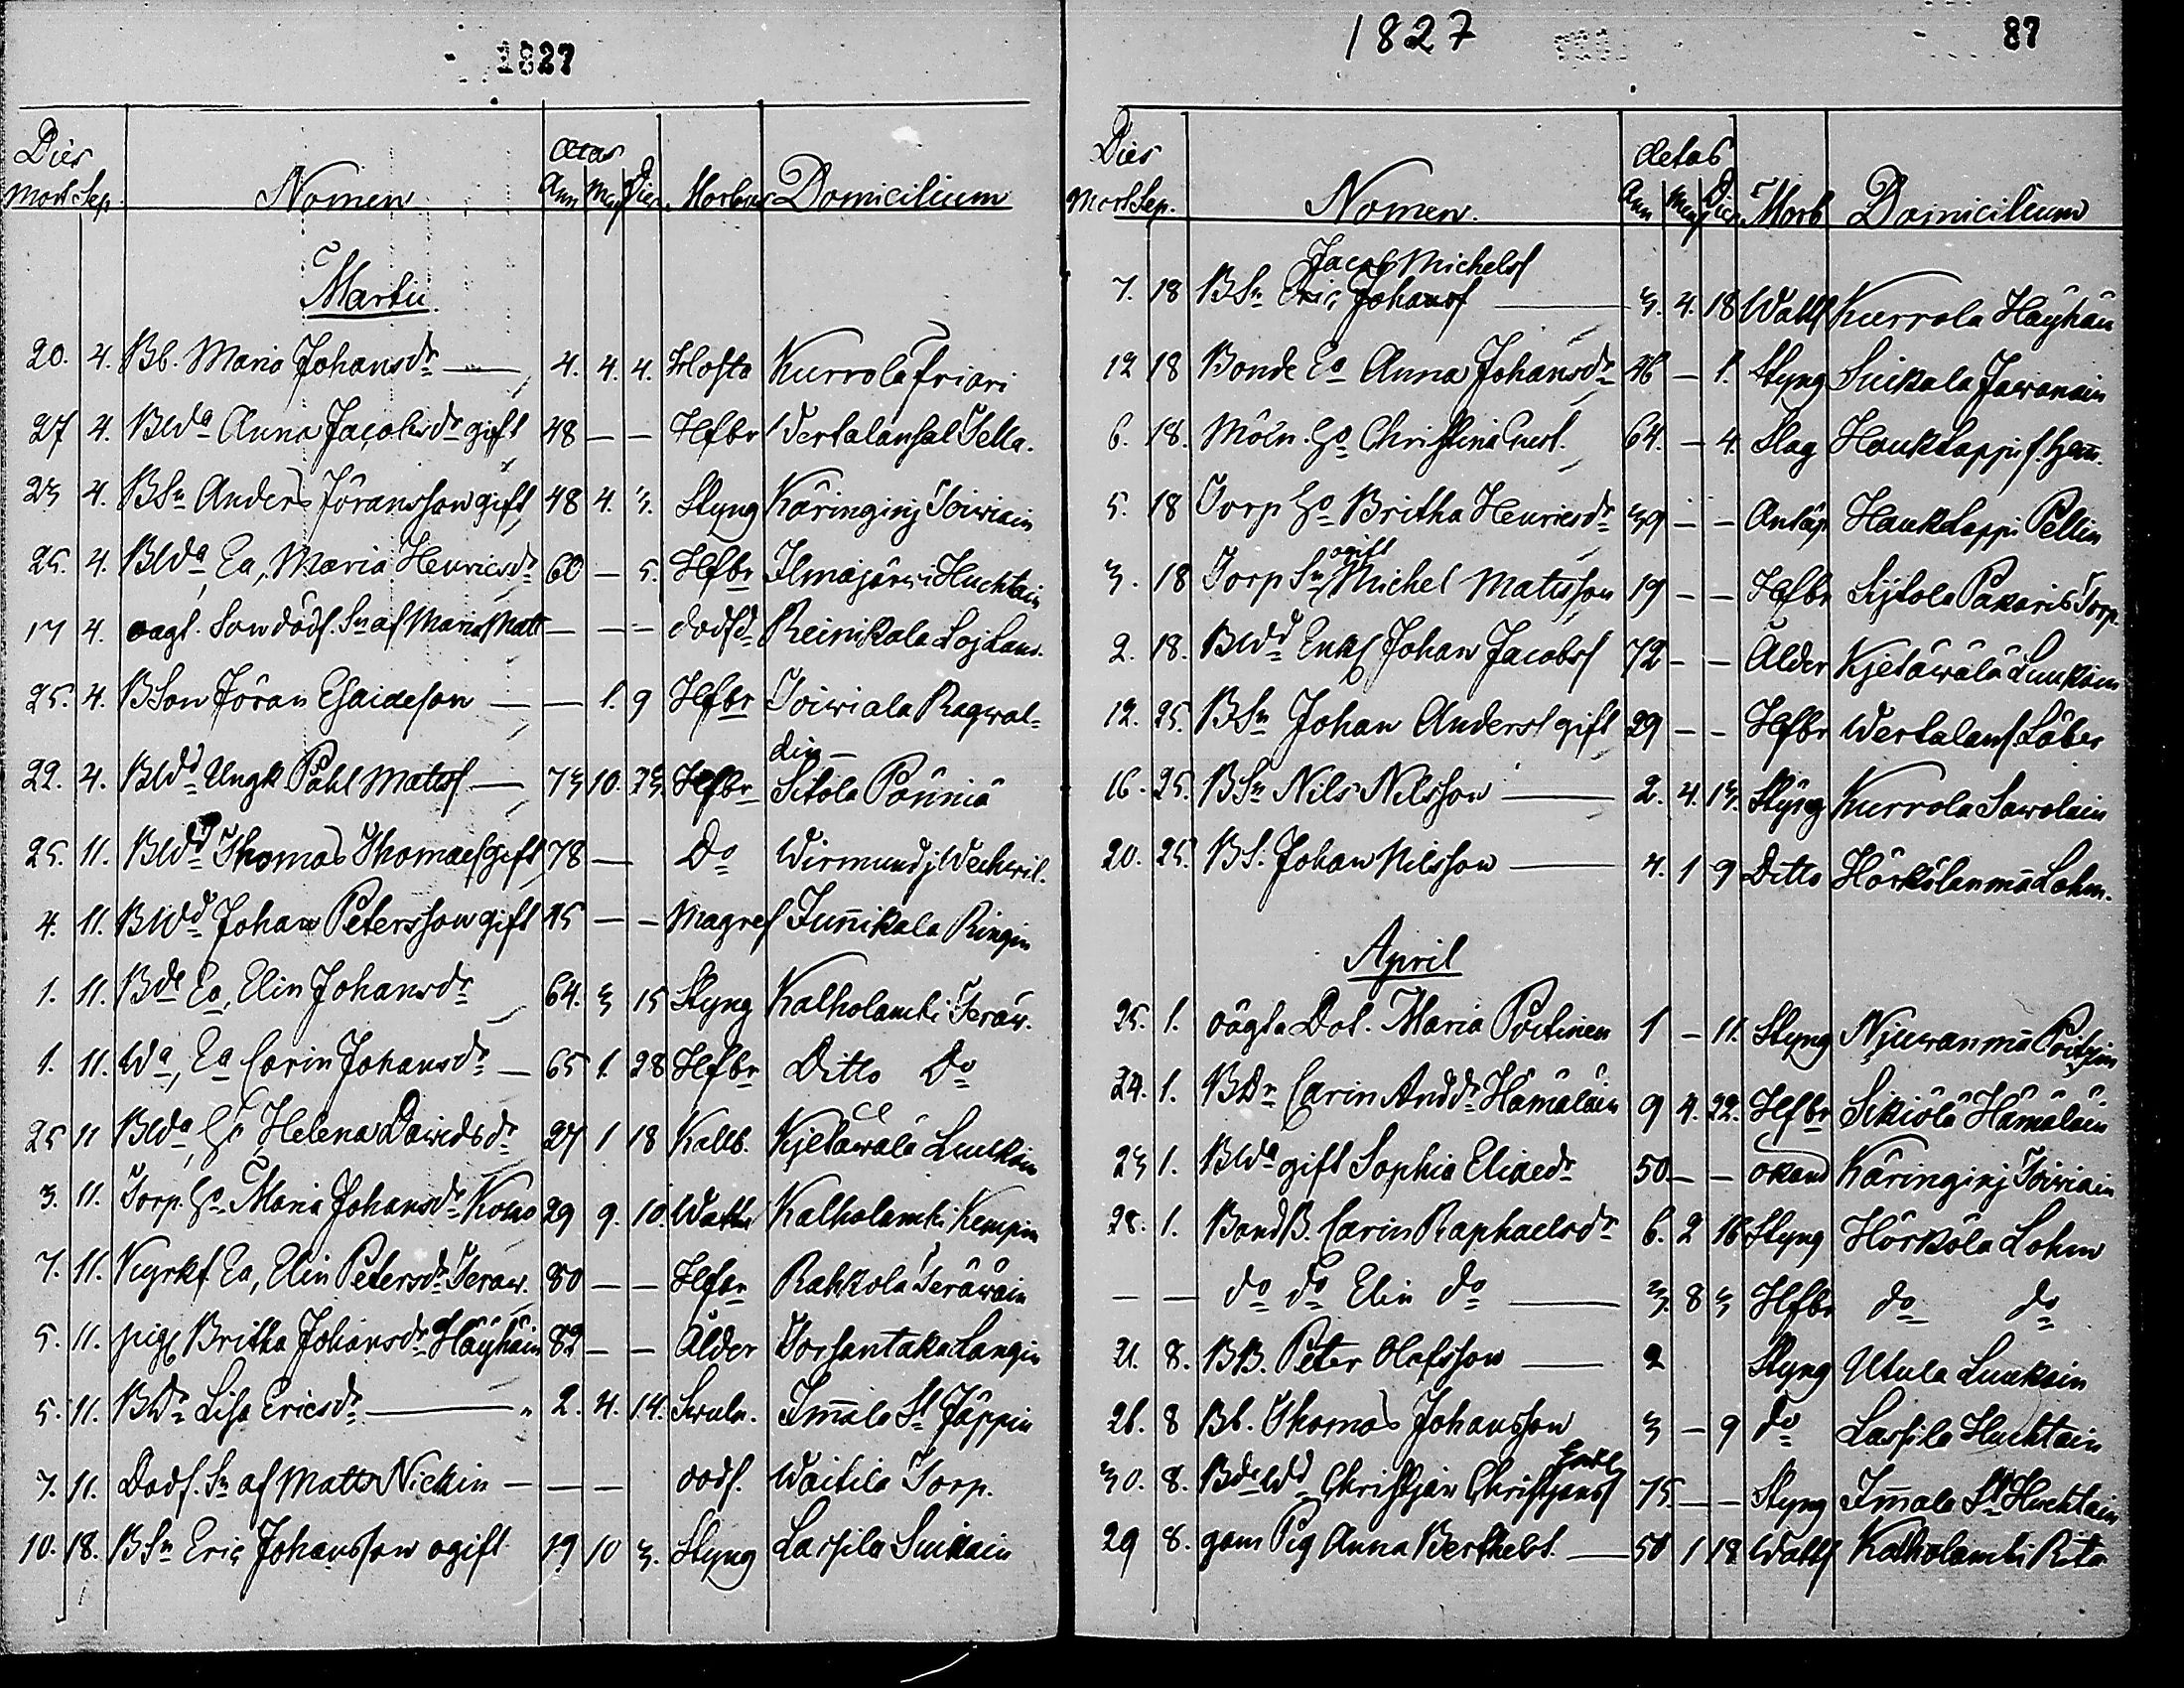 1827
Dies Aetas
Mort Sep. Nomen Ann Men Dies Morbus Domicilium
Martii
20. 4. Bb. Maria Johansdr — 4. 4. 4. Hosta Kurrola Friari
27 4. Bwda Anna Jacobsdr gift 48 — — Hfbr Wertalansal Tella.
23 4. BSn Anders Jöransson gift 48 4. 3. Styng Käringinj Toiviain
25. 4. Bwda, Ea, Maria Henricsdr 60 — 5. Hfbr Ilmajärwi Huchtain
17 4. oägt. Son dödf. Sn af Maria Matt — — — dödfd Reinikala Loj Laus.
25. 4. BSon Jöran Esaiaeson — — 1. 9 Hfbr Toiwiala Ragwal-
din —
22. 4. Bwdd Ungk Påhl Matssf — 73 10. 23. Hfbr Sitola Pönniä
25. 11. Bwdd Thomas Thomaef gift 78 — Do Wirmundj Wechvil.
4. 11. Bwdd Johan Petersson gift 45 — — Magref Junnikala Ringin
1. 11. Bde Ea, Elin Johansdr 64. 3 15 Styng Kalholambi Teräw.
1. 11. Wa, Ea Carin Johansdr — 65 1. 28 Hfbr Ditto Do
25 11 Bwda, Ho Helena Davidsdr 27 1 18 Kallb. Kjetäwälä Luukain
3. 11. Torp. Ho Maria Johansdr Komo 29 9. 10. Watts Kalholambi Kempin
7. 11. Kyrkf Ea, Elin Petersdr Teraw. 80 — — Hfbr Rahkola Teräwäin
5. 11. pig Britha Johansdr Häyhäin 82 — — Ålder Torsantaka Langin
5. 11. BDr Lisa Ericsdr — 2. 4. 14. Swuln. Immala St Jäppin
7. 11. Dödf. Sn af Matts Nickin — — — dödf. Waitila Torp.
10. 18. BSn Eric Johansson ogift 19 10 3. Styng Lassila Suikain
1827 87
Dies Aetas
Mort Sep. Nomen. Ann Men Dies Morb Domicilium
Jacob Michelsf
7. 18 BSn Eric Johansf — 3. 4. 18 Wattf Kurrola Häyhäu
12 18 Bonde Ea Anna Johansdr 46 — 1. Styng Suikala Jawanain
6. 18. Möln. Ho Christina Gust. 64. — 4. Slag Haukkappi f. Hem.
5. 18 Torp Ho Britha Henricsdr 39 — — Antäp Haukkappi Pellin
ogift
3. 18 Torp Sn Michel Matsson 19 — — Hfbr Sijtola Pakaris Torp.
2. 18. Bwdd Enkl Johan Jacobsf 72 — — Ålder Kjetäwälä Luukain
12. 25. BSn Johan Andersf gift 29 — — Hfbr Wertalansf Löber
16. 25. BSn Nils Nilsson — 2. 4. 13. Styng Kurrola Sawolain
20. 25. BS. Johan Nilsson — 4. 1 9 Ditto Hörkölänmä Lohm.
April
25. 1. oägta Dot. Maria Poitinen 1 — 11. Styng Njuwanmä Poitzin
24. 1. BDr Carin Anddr Hämäläin 9 4. 22. Hfbr Sikiölä Hämäläin
23 1. Bwda gift Sophia Eliaedr 50 — — okänd Käringinj Toiviain
28. 1. Bond B. Carin Raphaelsdr 6. 2 16 Styng Hörkölä Lohm
— — do do Elin do — 3. 8 3 Hfbr do do
21. 8. BB. Peter Olofsson — 2 Styng Utula Luukain
26. 8 Bb. Thomas Johansson 3 — 9 do Lassila Huchtain
Enkl
30. 8. Bde Wd Christjan Christjansf 75 — — Styng Immala St Huchtain
29 8. gam Pig Anna Berthelst. — 50 1 18 Wattf Kalholambi Rita